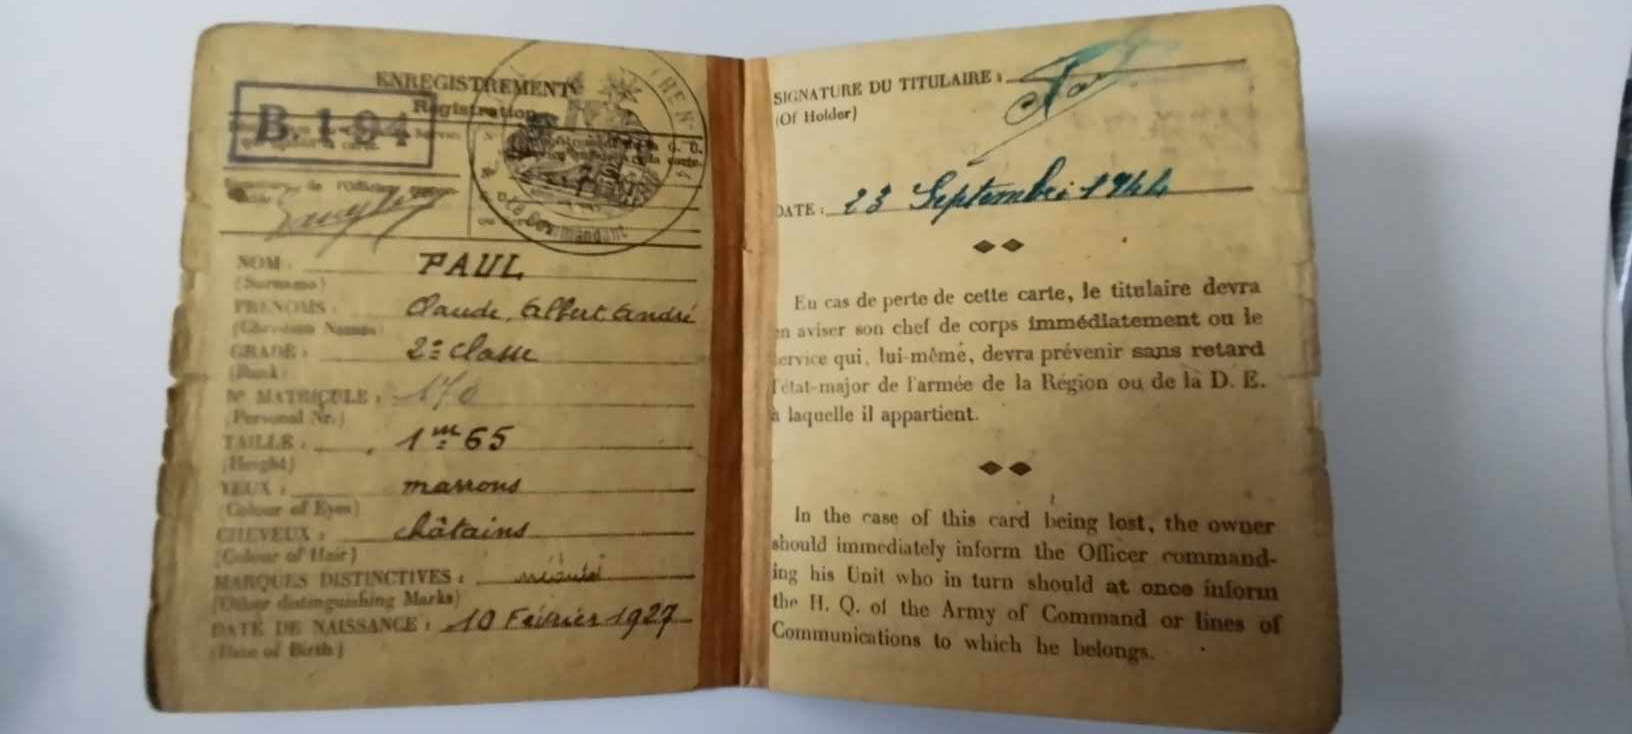 ENREGISTREMENT
Registration
B. 1-94
le Commandant
NOM :
PAUL
(Surname)
PRENOMS :
Claude, Albert, André
(Christian Names)
GRADE :
2e classe
(Rank)
N° MATRICULE :
170
(Personal Nr.)
TAILLE :
1m65
(Height)
YEUX :
marrons
(Colour of Eyes)
CHEVEUX :
châtains
(Colour of Hair)
MARQUES DISTINCTIVES :
(Other distinguishing Marks)
DATE DE NAISSANCE : 10 Février 1927
(Date of Birth)
SIGNATURE DU TITULAIRE :
(Of Holder)
DATE : 23 Septembre 1944
En cas de perte de cette carte, le titulaire devra
en aviser son chef de corps immédiatement ou le
service qui, lui-même, devra prévenir sans retard
l'état-major de l'armée de la Région ou de la D. E.
à laquelle il appartient.
In the case of this card being lost, the owner
should immediately inform the Officer command-
ing his Unit who in turn should at once inform
the H. Q. of the Army of Command or lines of
Communications to which he belongs.